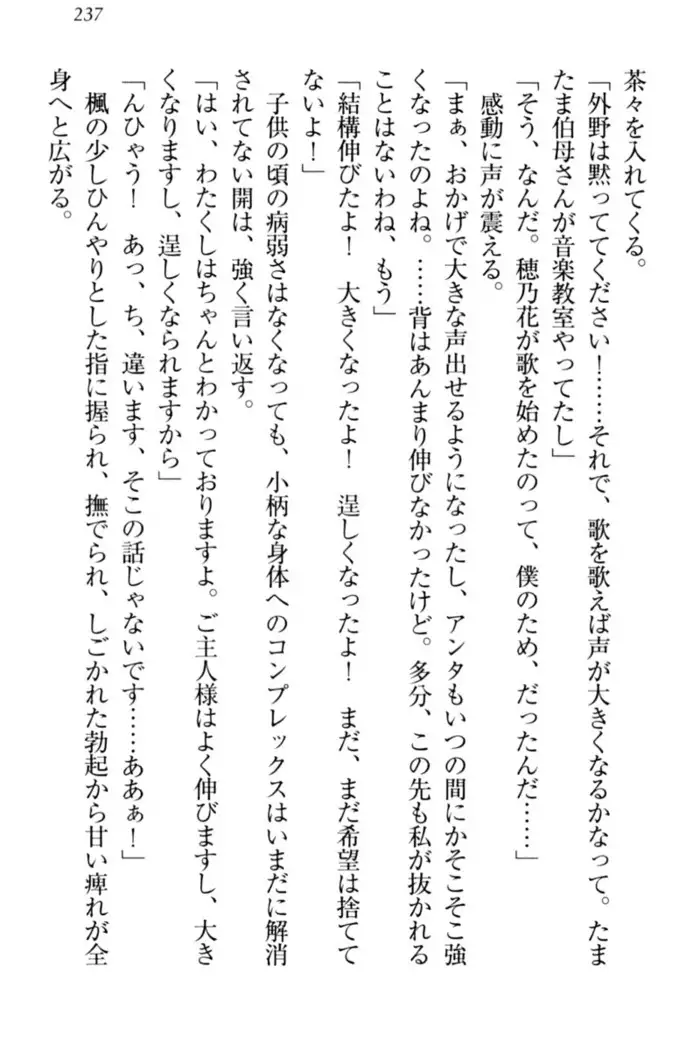 237
茶々を入れてくる。
「外野は黙っててください！……それで、歌を歌えば声が大きくなるかなって。たま
たま伯母さんが音楽教室やってたし」
「そう、なんだ。穂乃花が歌を始めたのって、僕のため、だったんだ……」
感動に声が震える。
「まぁ、おかげで大きな声出せるようになったし、アンタもいつの間にかそこそこ強
くなったのよね。……背はあんまり伸びなかったけど。多分、この先も私が抜かれる
ことはないわね、もう」
「結構伸びたよ！　大きくなったよ！　逞しくなったよ！　まだ、まだ希望は捨てて
ないよ！」
子供の頃の病弱さはなくなっても、小柄な身体へのコンプレックスはいまだに解消
されてない開は、強く言い返す。
「はい、わたくしはちゃんとわかっておりますよ。ご主人様はよく伸びますし、大き
くなりますし、逞しくなられますから」
「んひゃう！　あっ、ち、違います、そこの話じゃないです……ああぁ！」
楓の少しひんやりとした指に握られ、撫でられ、しごかれた勃起から甘い痺れが全
身へと広がる。